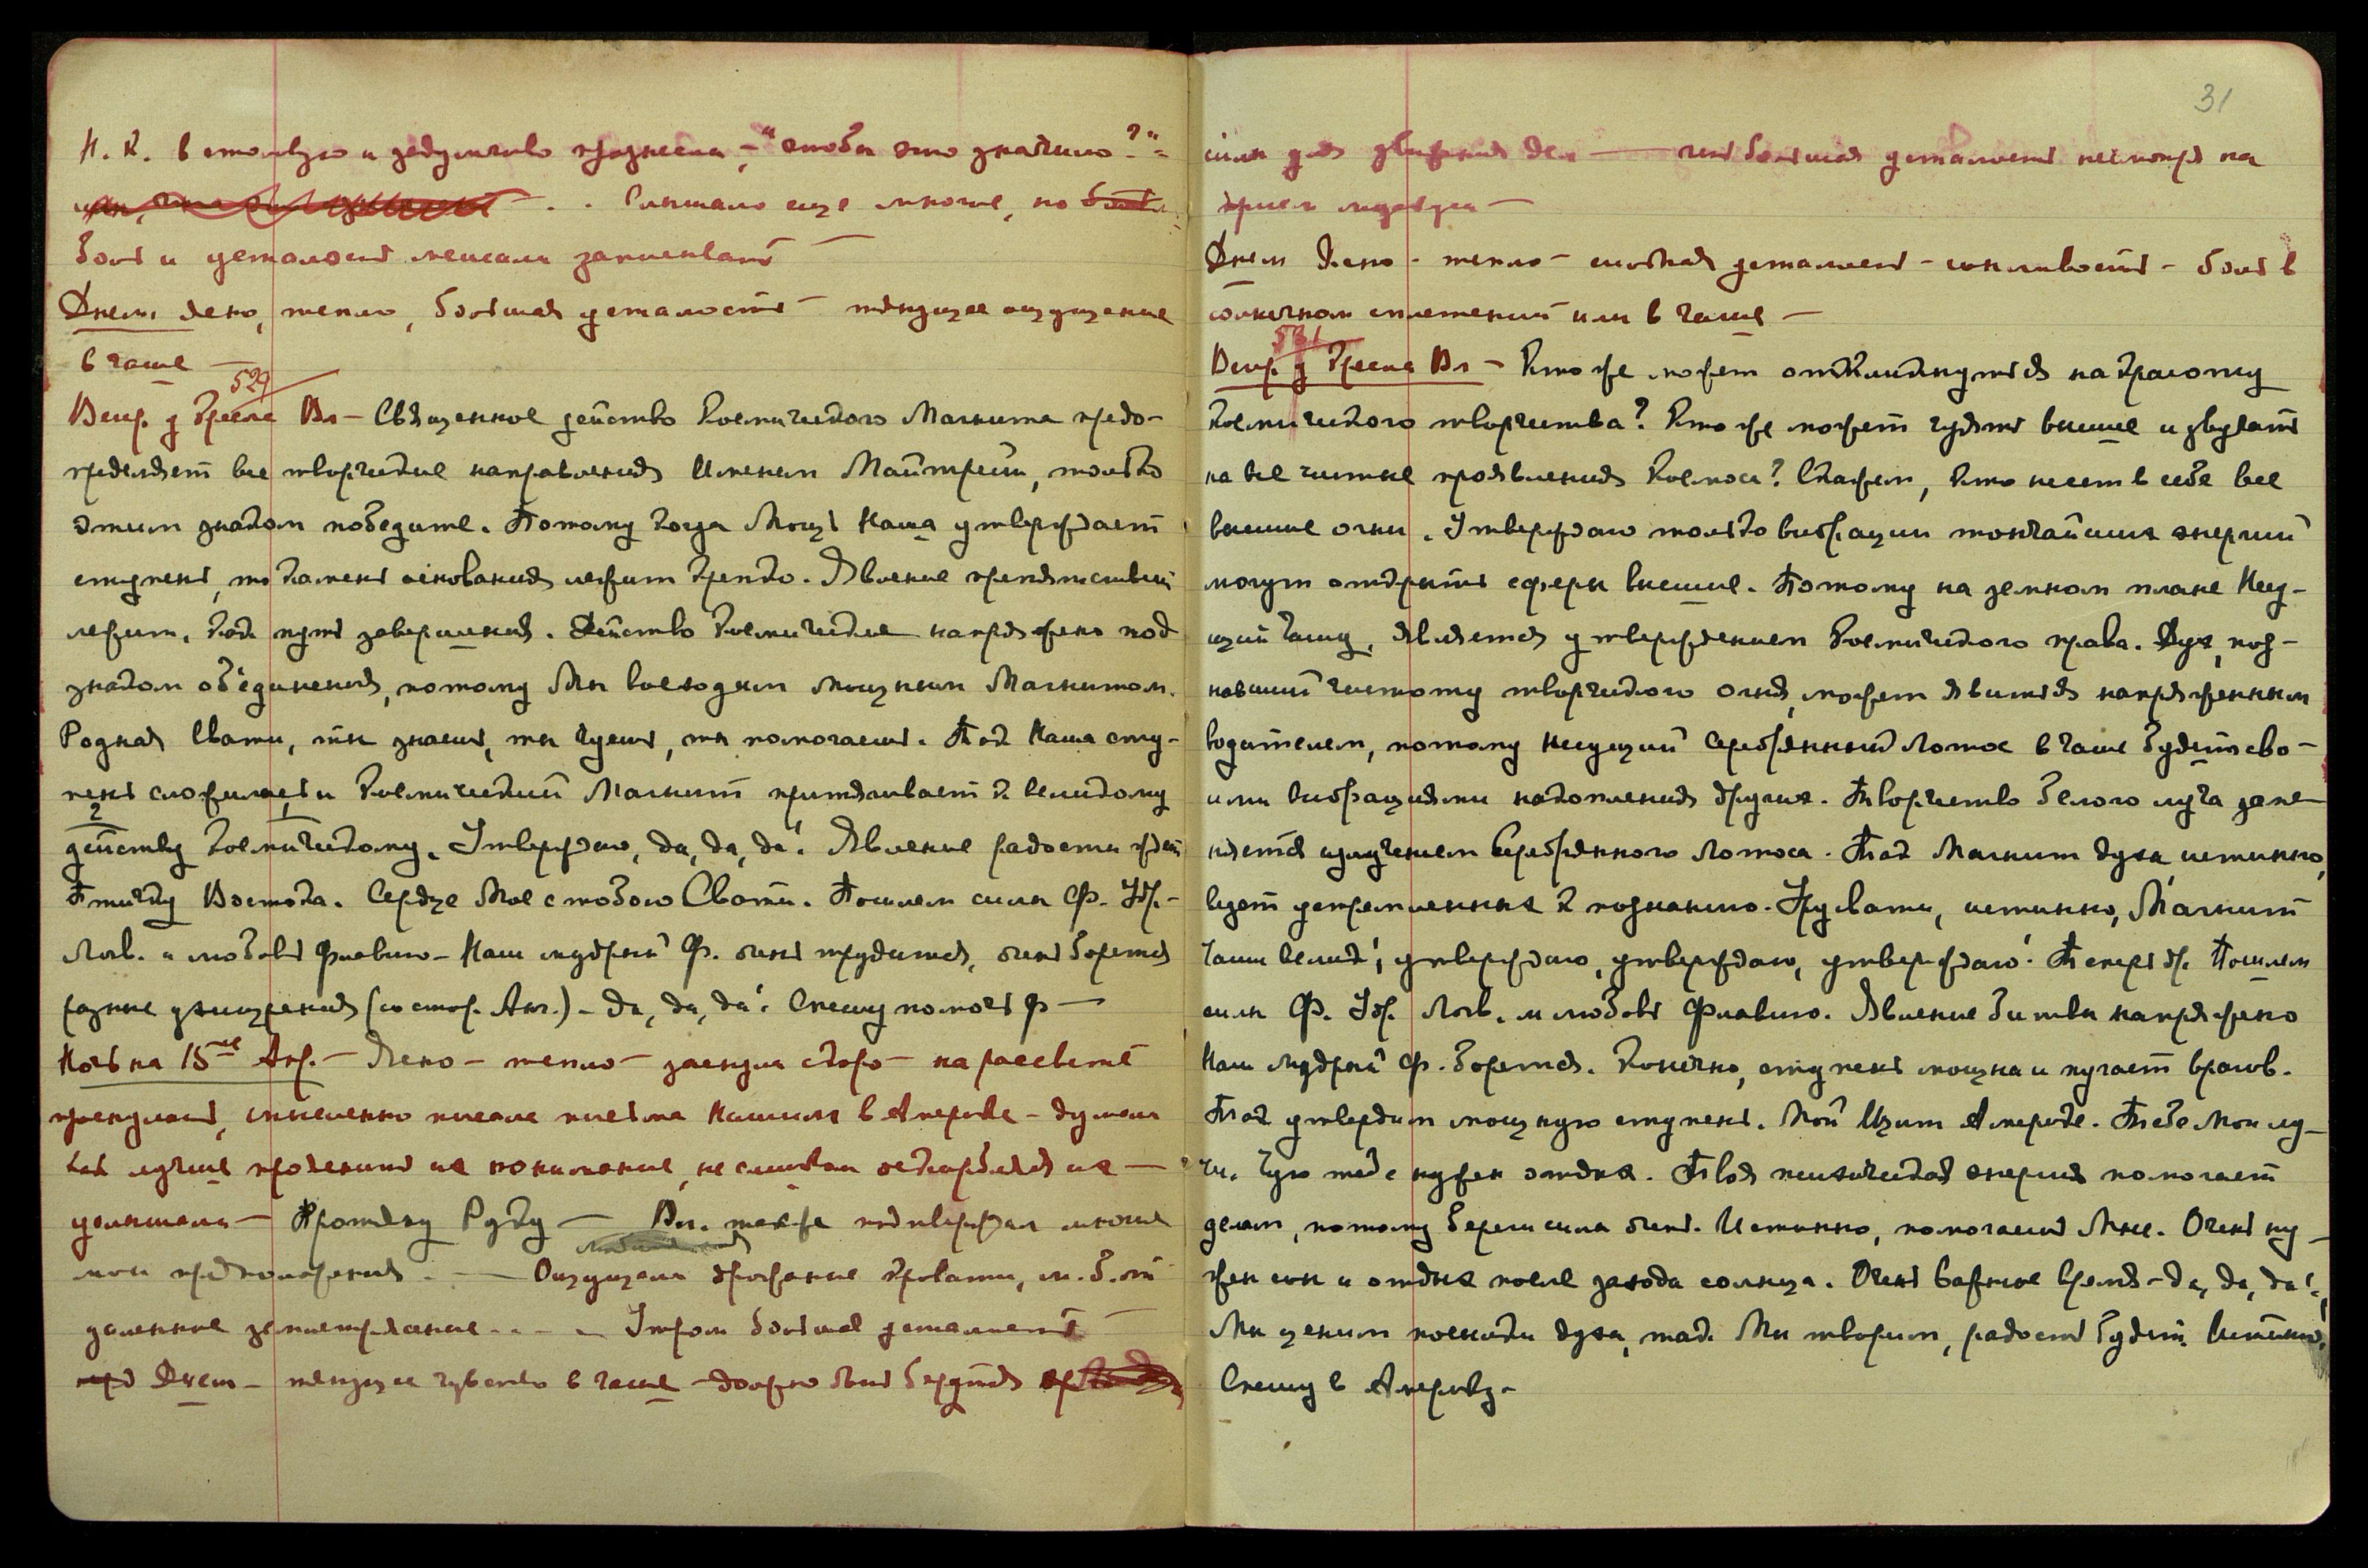 Н. К. в столовую и задумчиво произнесла, - "чтобы это значило?"
Слышала еще многое, но
боль и усталость мешали записывать
Днем ясно, тепло, большая усталость - тянущее ощущение
в чаше -
529
Веч. у кресла Вл - Священное действо Космического Магнита предо-
пределяет все творческие направления Именем Майтрейи, только
этим знаком победите. Потому когда Мощь Наша утверждает
ступень, то камень основания лежит крепко. Явление препятствий
лежит, как путь завершения. Действо Космическое напряжено под
знаком объединения, потому Мы восходим мощным Магнитом.
Родная Свати, ты знаешь, ты чуешь, ты помогаешь. Так Наша сту-
пень сложилась и Космический Магнит притягивает к великому
2 1
действу Космическому. Утверждаю, да, да, да! Явление радости ждет
Птичку Востока. Сердце Мое с тобою Свати. Пошлем силы Ф. Удр.
Логв. и любовь Флавию - Наш мудрый Ф. очень трудится, очень борется
разные ухищрения (со стор. Анг.) - Да, да, да! Спешу помочь Ф -
Ночь на 15ое Апр. - Ясно - тепло - заснула скоро - на рассвете
проснулась, мысленно писала письма Нашим в Америке - думала
как лучше прояснить их понимание, не слишком оскорбляя их -
услышала - Протяну Руку - Вл. также подтверждал многие
мои предположения. - Ощущала дрожание кровати, м. б. от
даленное землетрясение. - Утром большая усталость
Днем - тянущее чувство в чаше - должно быть берутся
31
силы для движения дел - чем большая усталость несмотря на
прием мускуса -
Днем Ясно - тепло - сильная усталость - сонливость - боль в
солнечном сплетении или в чаше -
531
Веч. у кресла Вл - Кто же может откликнуться на красоту
космического творчества? Кто же может чуять высшие и звучать
на все чистые проявления Космоса? Скажем, кто несет в себе все
высшие огни. Утверждаю только вибрации тончайших энергий
могут открыть сферы высшие. Потому на земном плане Несу-
щий Чашу, является утверждением Космического права. Дух, поз-
навший чистоту творческого огня, может явиться напряженным
водителем, потому Несущий Серебрянный Лотос в чаше будит сво-
ими вибрациями накопления других. Творчество белого луча запе-
няется излучением Серебрянного Лотоса. Так Магнит духа, истинно,
ведет устремленных к познанию. Урусвати, истинно, Магнит
Чаши велик; утверждаю, утверждаю, утверждаю! Теперь др. Пошлем
силы Ф. Удр. Логв. и любовь Флавию. Явление битвы напряжено
Наш мудрый Ф. борется. Конечно, ступень мощна и пугает врагов.
Так утвердим мощную ступень. Мой Щит Америке. Тебе Мои лу-
чи. Чую тебе нужен отдых. Твоя психическая энергия помогает
делам, потому берем силы очень. Истинно, помогаешь Мне. Очень ну-
жен сон и отдых после захода солнца. Очень важное время - да, да, да!,
Мы ценим посылки духа, так Мы творим, радость будет. Истинно,
Спешу в Америку -